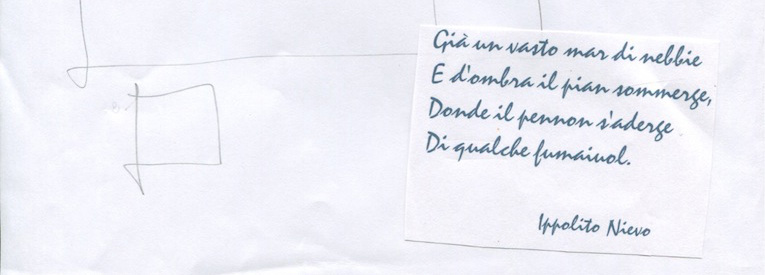 Già un vasto mar di nebbie
E d'ombra il pian sommerge,
Donde il pennon s'aderge
Di qualche fumaiuol.
Ippolito Nievo